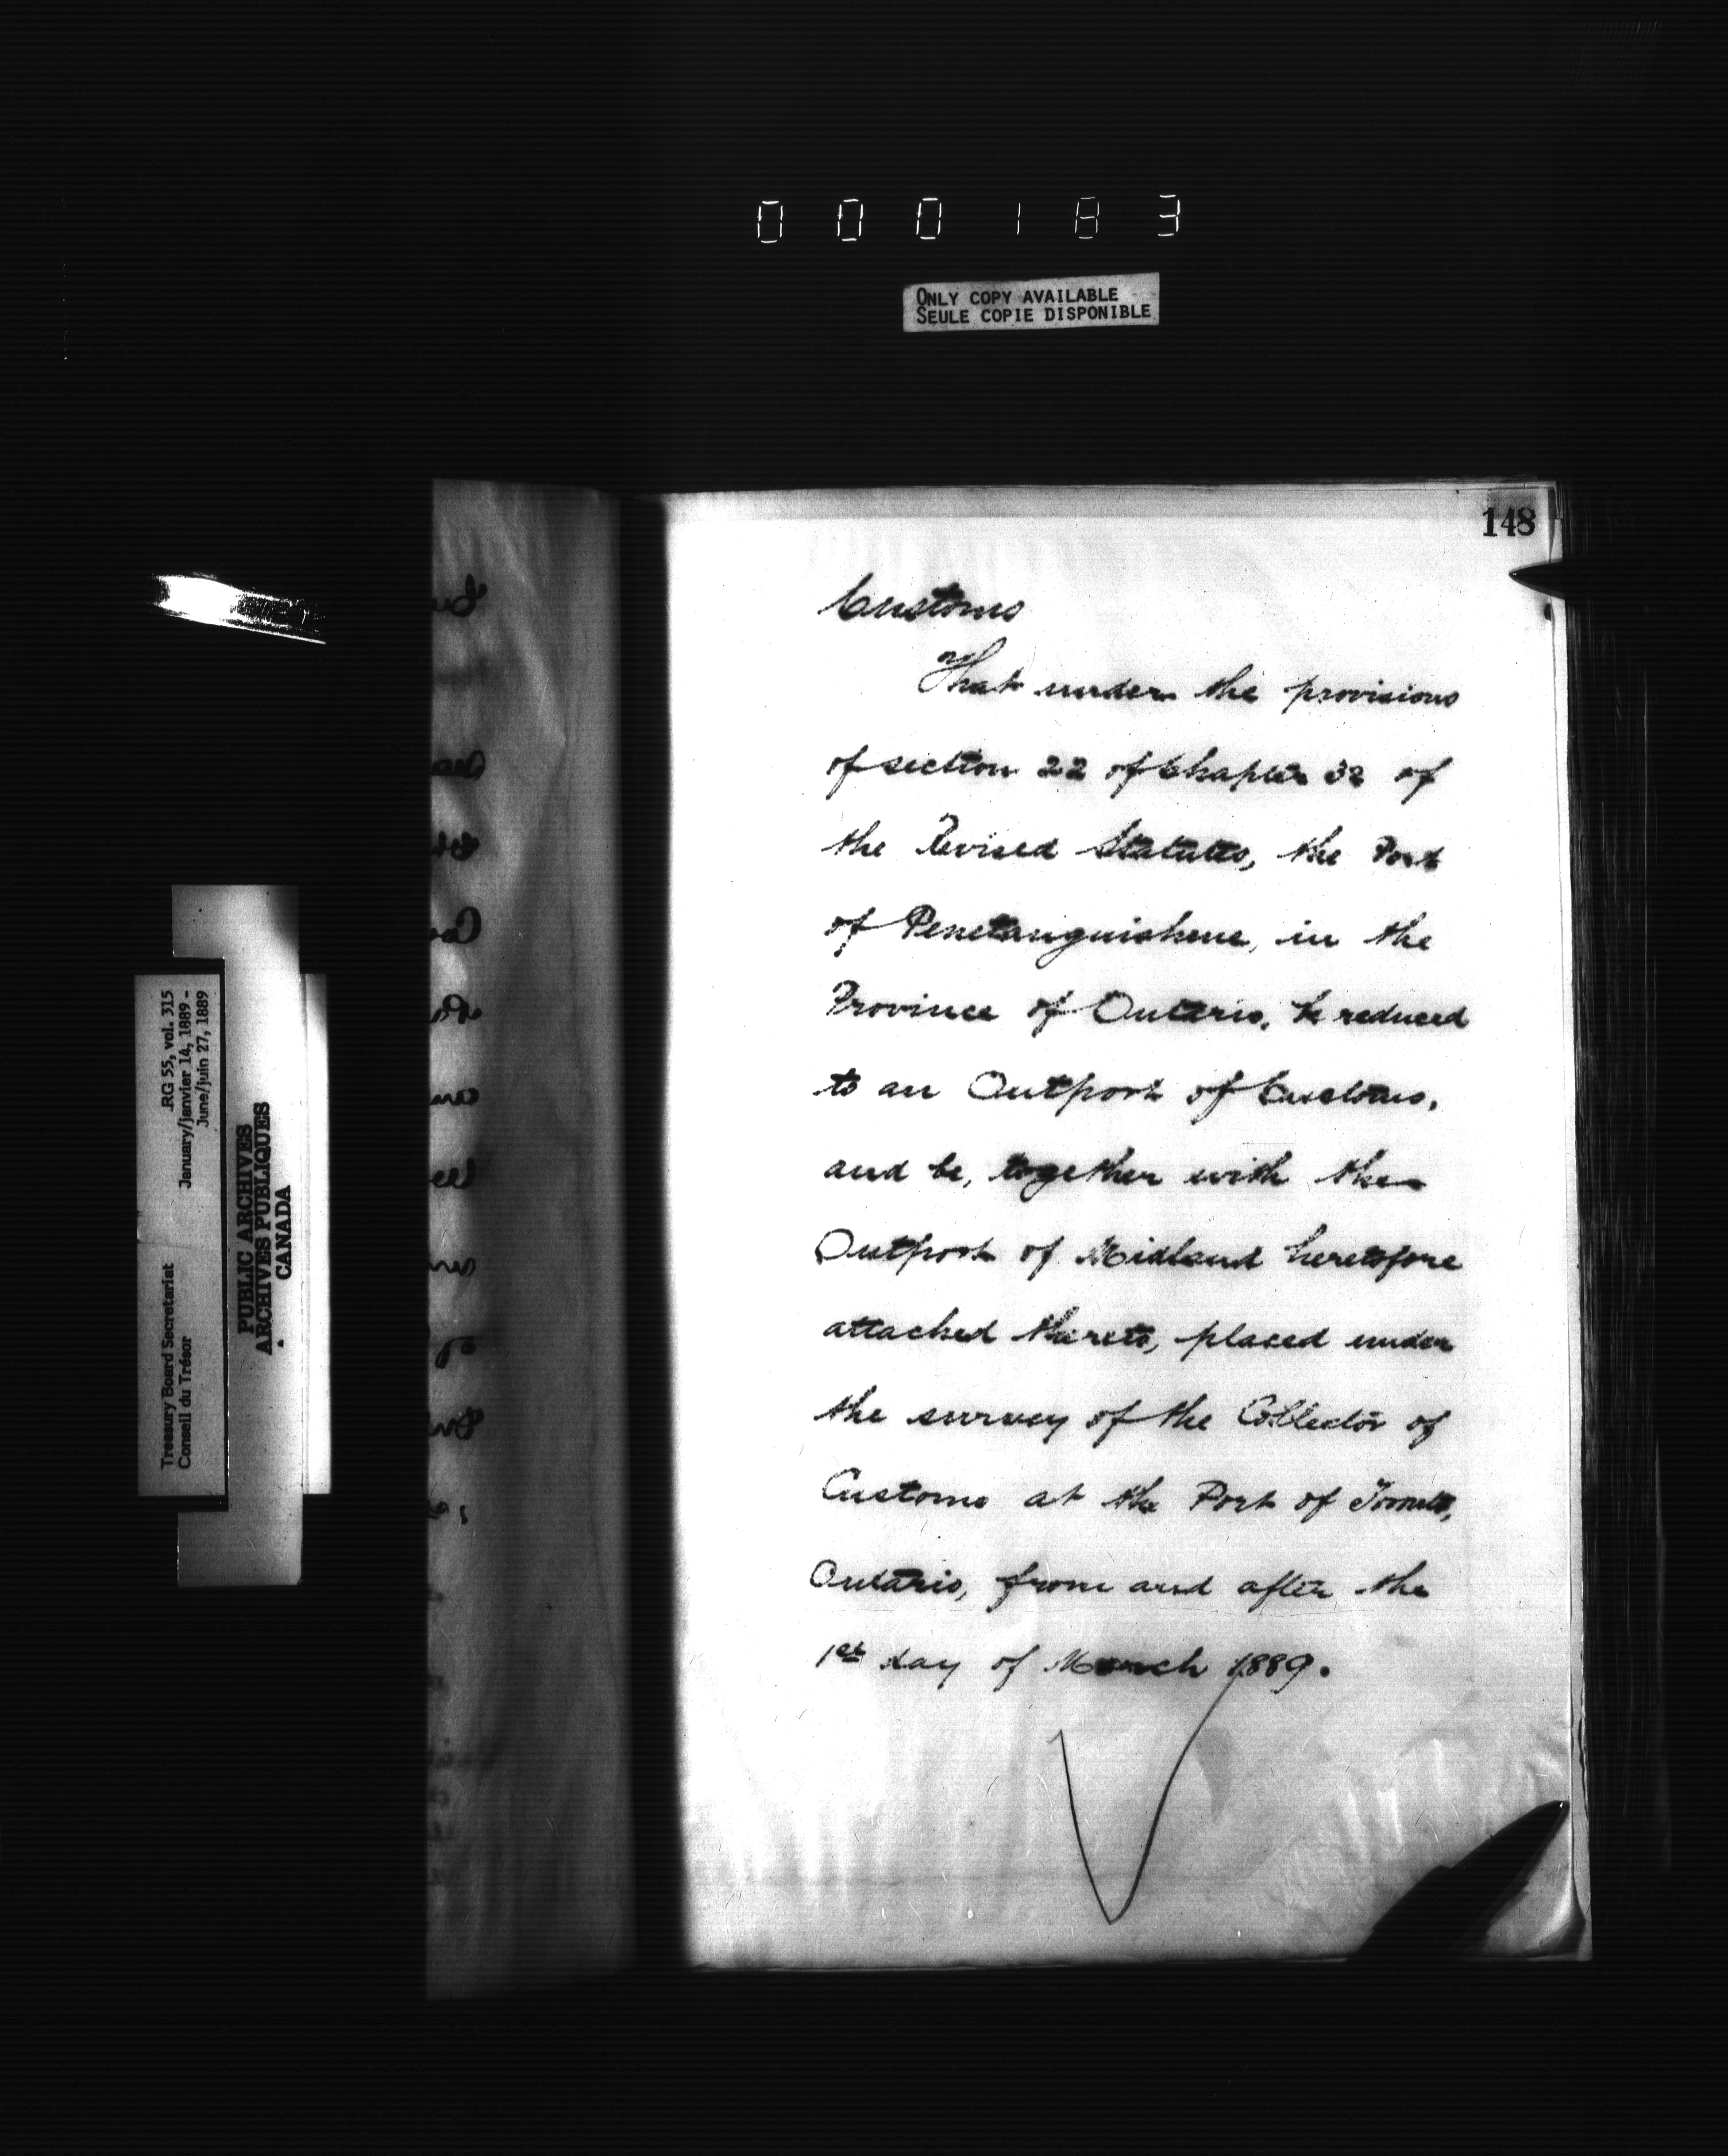 000183
ONLY COPY AVAILABLE
SEULE COPIE DISPONIBLE
148
Customs
That under the provisions
of section 22 of Chapter 32 of
the Revised Statutes, the Port
of Penetanguishene, in the
Province of Ontario, be reduced
to an Outport of Customs,
and be, together with the
Outport of Midland heretofore
attached thereto, placed under
the survey of the Collector of
Customs at the Port of Toronto,
Ontario, from and after the
1st day of March 1889.
Treasury Board Secretariat RG 55, vol. 315
Conseil du Trésor January/janvier 14, 1889 -
June/juin 27, 1889
PUBLIC ARCHIVES
ARCHIVES PUBLIQUES
CANADA